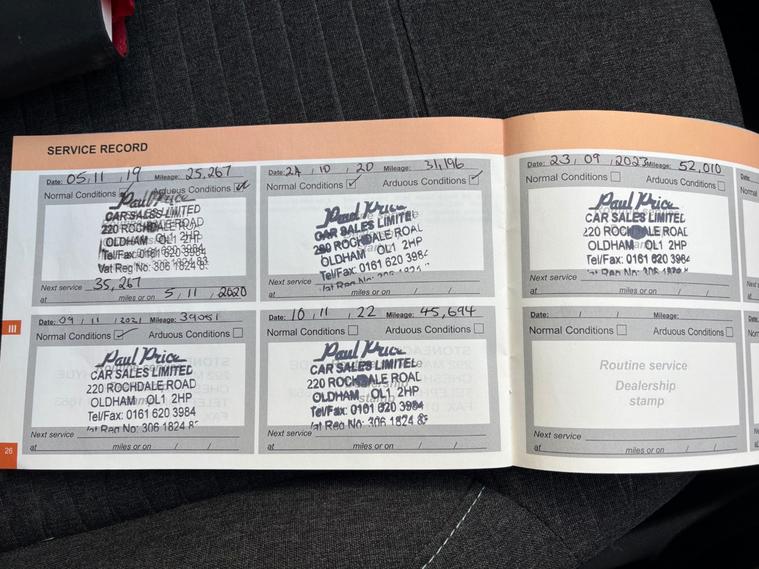 SERVICE RECORD
Date: 05, 11 , 19 Mileage: 25,267
Normal Conditions Arduous Conditions
Paul Price
CAR SALES LIMITED
220 ROCHDALE ROAD
OLDHAM OL1 2HP
Tel/Fax: 0161 620 3984
Vat Reg No: 306 1824 83
Next service 35,267
at miles or on 5, 11, 2020
Date: 24 , 10 , 20 Mileage: 31,196
Normal Conditions Arduous Conditions
Paul Price
CAR SALES LIMITE
220 ROCHDALE ROAD
OLDHAM OL1 2HP
Tel/Fax: 0161 620 3984
Next service
at miles or on / /
Date: 23 , 09 , 2023 Mileage: 52,010
Normal Conditions Arduous Conditions
Paul Price
CAR SALES LIMITED
220 ROCHDALE ROAL
OLDHAM OL1 2HP
Tel/Fax: 0161 620 398
Next service
at miles or on / /
Date:
III
Date: 09 , 11 , 2021 Mileage: 39051
Normal Conditions Arduous Conditions
Paul Price
CAR SALES LIMITED
220 ROCHDALE ROAD
OLDHAM OL1 2HP
Tel/Fax: 0161 620 3984
Reg No: 306 1824
Next service
at miles or on / /
Date: 10 , 11 , 22 Mileage: 45,694
Normal Conditions Arduous Conditions
Paul Price
CAR SALES LIMITE
220 ROCHDALE ROAL
OLDHAM OL1 2HP
Tel/Fax: 0161 620 3984
Reg No: 306 1824
Next service
at miles or on / /
Date: / / Mileage:
Normal Conditions Arduous Conditions
Routine service
Dealership
stamp
Next service
at miles or on / /
26